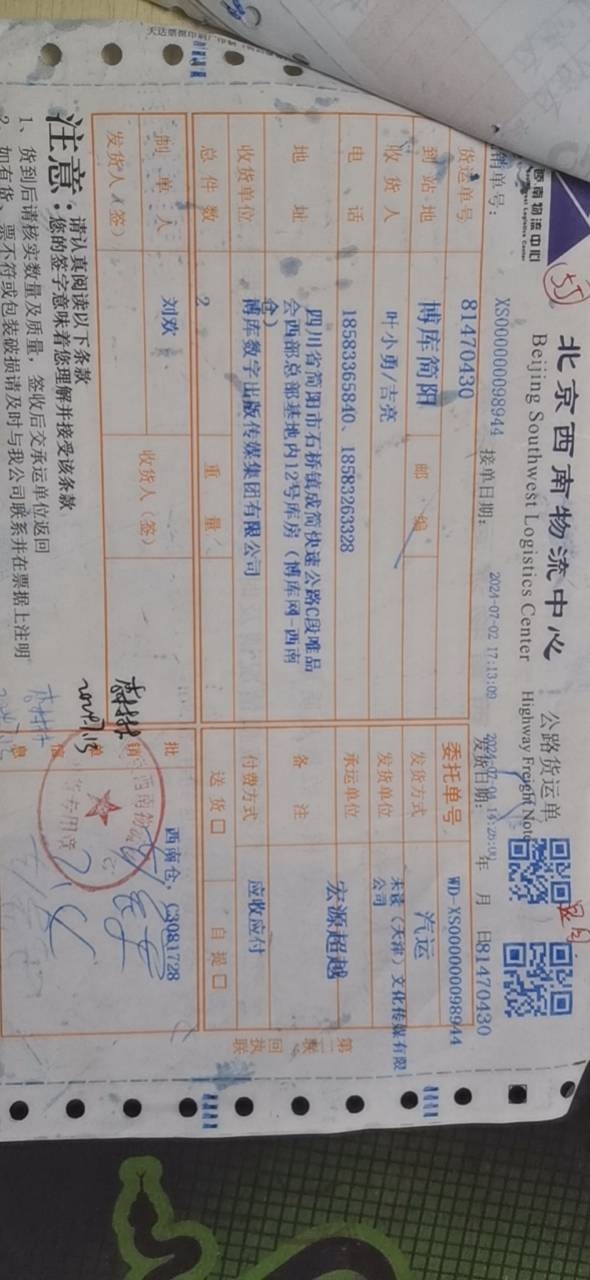 北京西南物流中心 公路货运单
Beijing Southwest Logistics Center Highway Freight Note
西南物流中心
销单号: XS000000098944 接单日期: 2024-07-02 17:13:09 发货日期: 年 月 日 81470430
货运单号 81470430 委托单号 WD-XS000000098944
到站地 博库简阳 邮编 发货方式 汽运
收货人 叶小勇/吉亮 发货单位 未读（天津）文化传媒有限公司
电话 18583365840、18583263328 承运单位 宏源超越
地址 四川省简阳市石桥镇成简快速公路C段唯品
会西部总部基地内12号库房（博库网-西南
仓） 备注
收货单位 博库数字出版传媒集团有限公司 付费方式 应收应付
总件数 2 重量 送货□ 自提□
制单人 刘欢 收货人（签） 批销单信息 西南仓，C3081728
发货人（签）
第二联 回执联
注意: 请认真阅读以下条款
您的签字意味着您理解并接受该条款
1、货到后请核实数量及质量，签收后交承运单位返回
2、如有货、票不符或包装破损请及时与我公司联系并在票据上注明